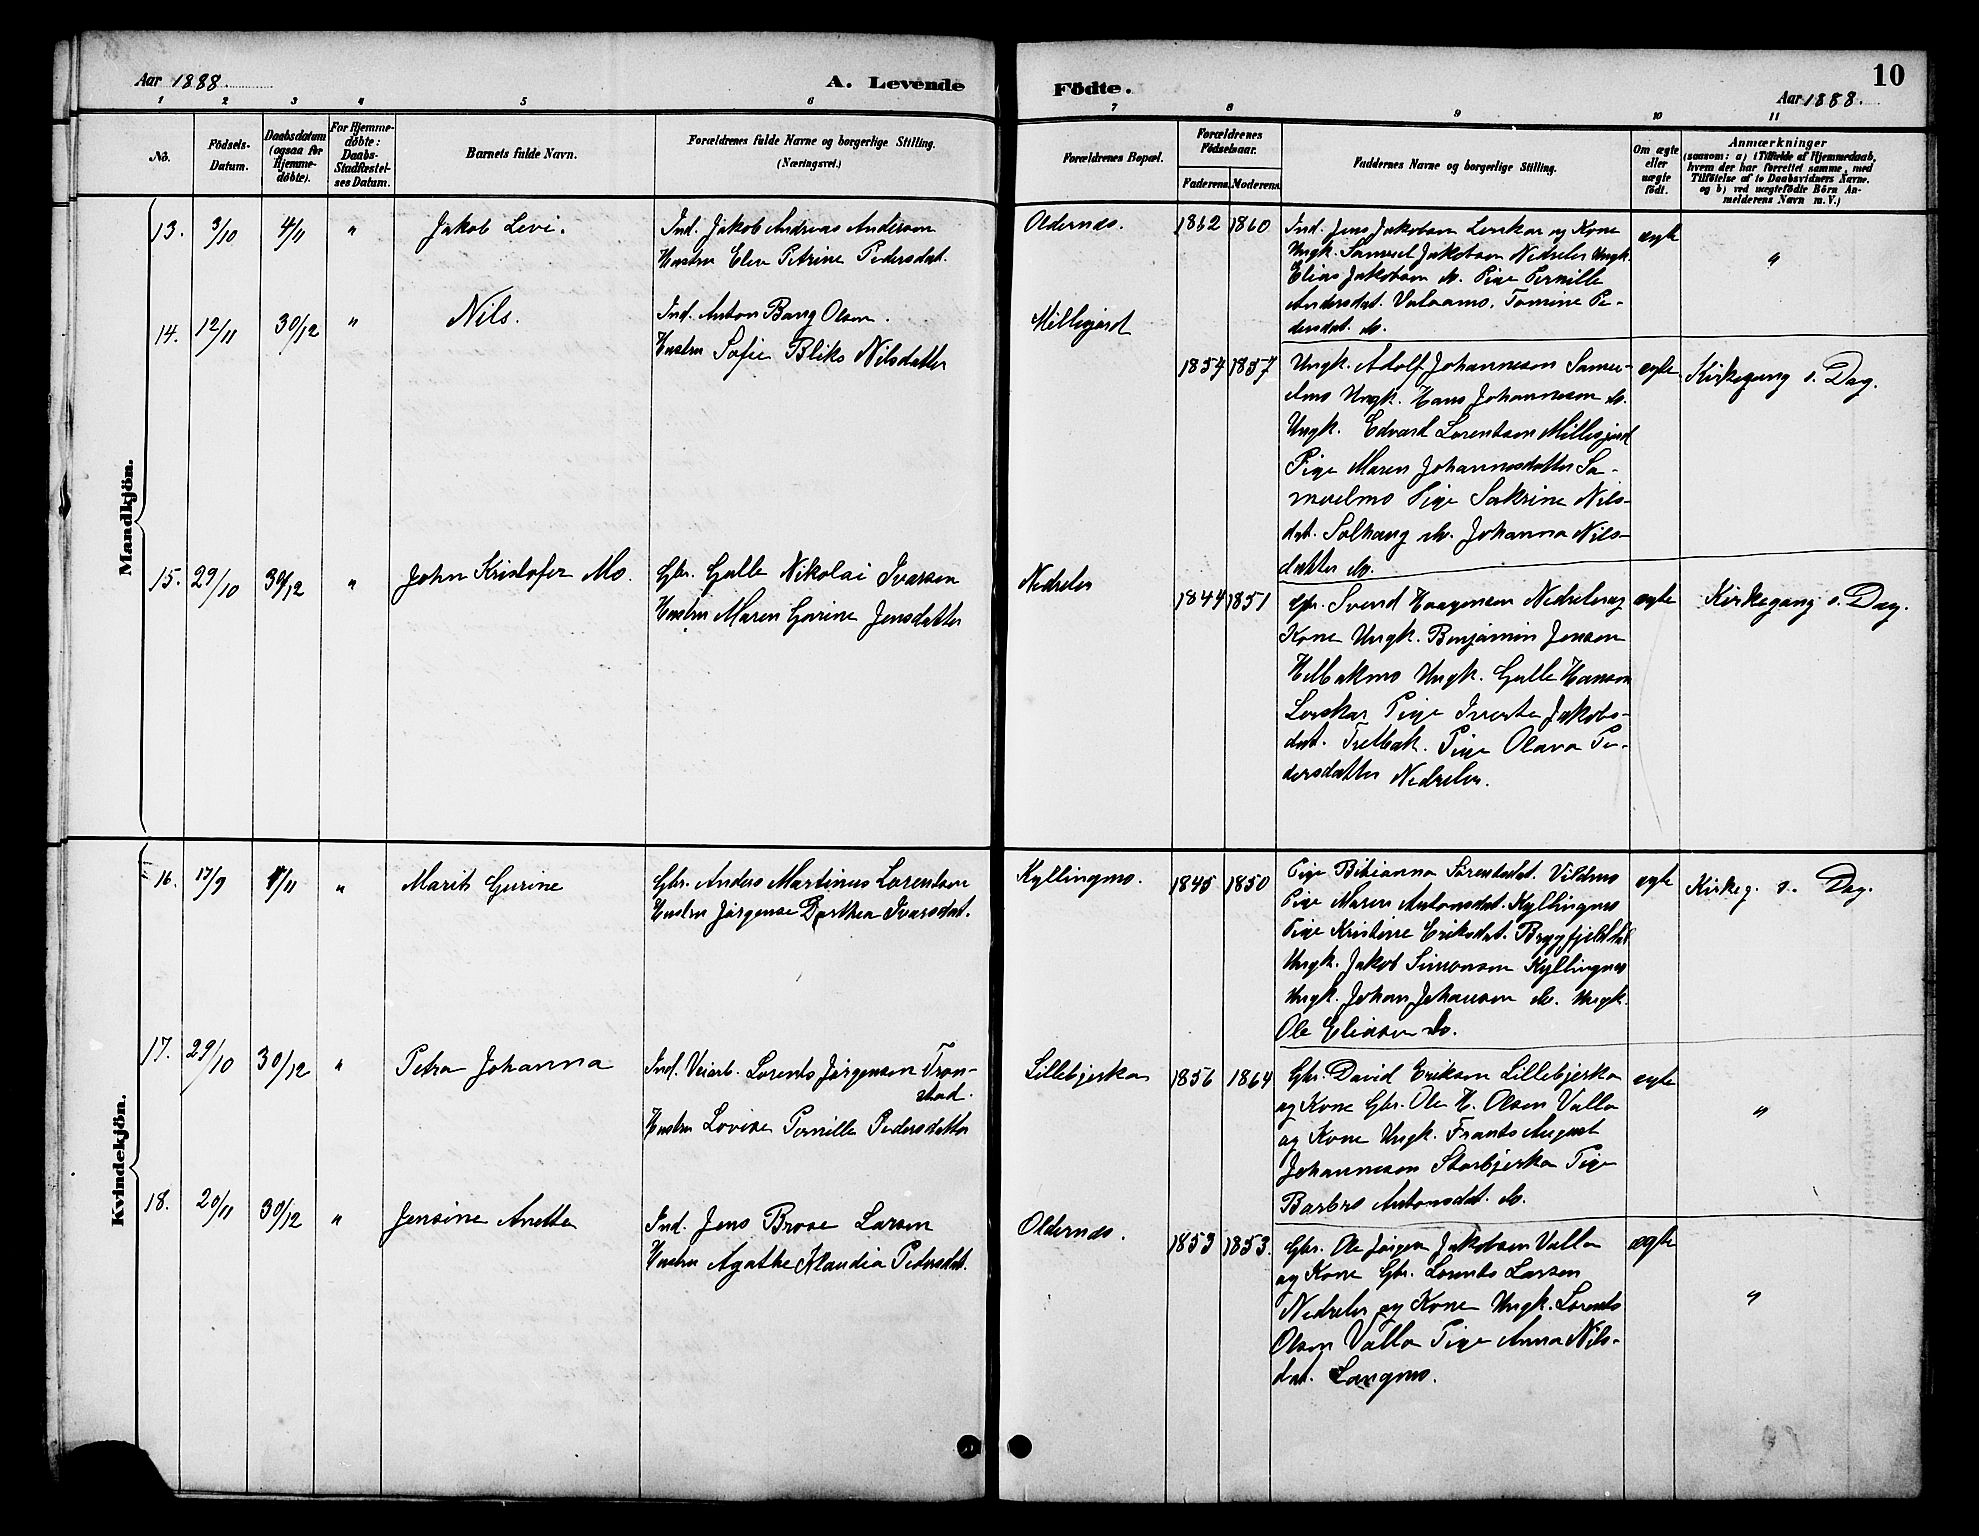 Aar 1888.
A. Levende
Födte.
10
Aar 1888.
1 2 3 4 5 6 7 8 9 10 11
No.
Födsels-Datum.
Daabsdatum (ogsaa for Hjemme-döbte).
For Hjemme-döbte: Daabs-Stadfæstel-ses Datum.
Barnets fulde Navn.
Forældrenes fulde Navne og borgerlige Stilling. (Næringsvei.)
Forældrenes Bopæl.
Forældrenes Födselsaar.
Faderens. Moderens.
Faddernes Navne og borgerlige Stilling.
Om ægte eller uægte födt.
Anmærkninger (saasom: a) i Tilfælde af Hjemmedaab, hvem der har forrettet samme, med Tilföielse af to Daabsvidners Navne. og b) ved uægtefödte Börn An-melderens Navn m. V.)
Mandkjön.
13. 3/10 4/11 " Jakob Levi.
Ind. Jakob Andreas Andersen
Hustru Elen Petrine Pedersdat.
Oldernes. 1862 1860
Ind. Jens Jakobsen Lerskar og Kone
Ungk. Samuel Jakobsen Nedreler Ungk.
Elias Jakobsen do. Pige Pernille
Andersdat. Valaamo, Tomine Pe-
dersdat. do.
ægte "
14. 12/11 30/12 " Nils.
Ind. Anton Bang Olsen.
Hustru Sofie Bliks Nilsdatter
Millesjord
1854 1857
Ungk. Adolf Johannesen Samu-
elmo Ungk. Hans Johannesen do.
Ungk. Edvard Lorentsen Millesjord
Pige Maren Johannesdatter Sa-
muelmo Pige Sakrine Nils-
dat. Solhaug do. Johanna Nils-
datter do.
ægte Kirkegang s. Dag.
15. 29/10 30/12 " John Kristofer Mo.
Gbr. Gulle Nikolai Ivarsen
Hustru Maren Gurine Jensdatter
Nedreler
1844 1851
Gbr. Svend Haagensen Nedreler og
Kone Ungk. Benjamin Jensen
Helbakmo Ungk. Gulle Hansen
Lerskar Pige Jakobs-
dat. Trelbak. Pige Olava Pe-
dersdatter Nedreler.
ægte Kirkegang s. Dag.
Kvindekjön.
16. 17/9 1/11 " Marit Gurine
Gbr. Anders Martinus Lorentsen
Hustru Jørgense Dorthea Ivarsdat.
Kyllingmo. 1845 1850
Pige Bibianna Sörensdat. Vildmo
Pige Maren Antonsdat. Kyllingmo
Pige Kristine Eriksdat. Brygfjelddal
Ungk. Jakob Simonsen Kyllingmo
Ungk. Johan Johansen do. Ungk.
Ole Eliasen do.
ægte Kirkeg. s. Dag.
17. 29/10 30/12 " Petra Johanna
Ind. Veiarb. Lorents Jørgensen Tron-
stad.
Hustru Lovise Pernille Pedersdatter
Lillebjerka 1856 1864
Gbr. David Eriksen Lillebjerka
og Kone Gbr. Ole H. Olsen Valla
og Kone Ungk. Frants August
Johannesen Storbjerka Pige
Barbro Antonsdat. do.
ægte "
18. 20/11 30/12 " Jensine Anette
Ind. Jens Brose Larsen
Hustru Agathe Klaudia Pedersdat.
Oldernes. 1853 1853.
Gbr. Ole Jørgen Jakobsen Valla
og Kone Gbr. Lorents Larsen
Nedreler og Kone Ungk. Lorents
Olsen Valla Pige Anna Nils-
dat. Langmo.
ægte "